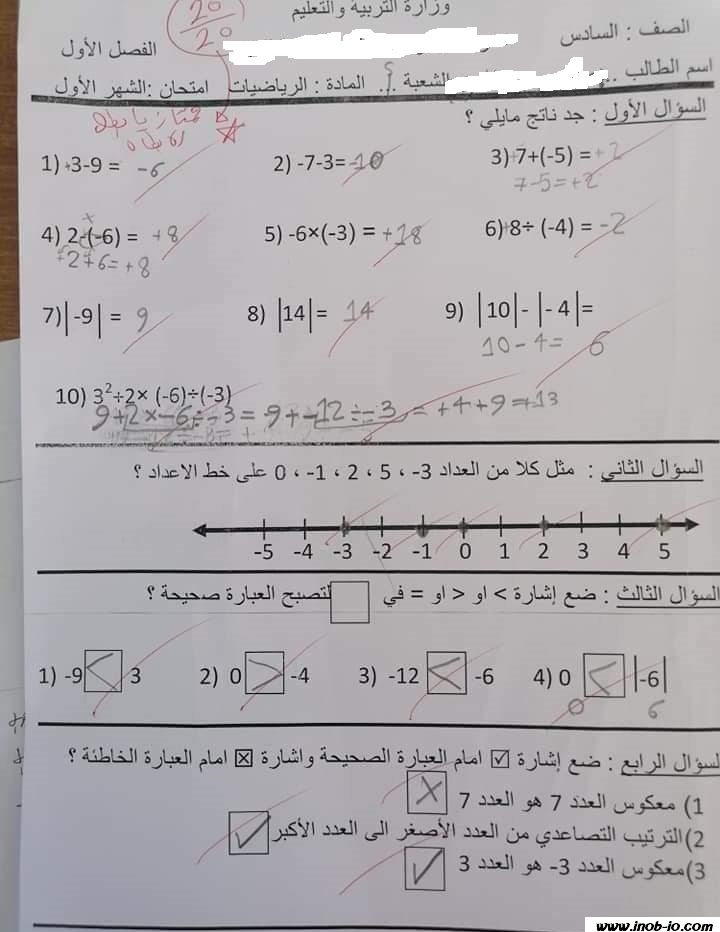 وزارة التربية والتعليم
20/20
الصف : السادس
الفصل الأول
اسم الطالب .. الشعبة .أ. المادة : الرياضيات امتحان :الشهر الأول
ممتاز يا بطل
السؤال الأول : جد ناتج مايلي ؟
1) +3-9 = -6 2) -7-3= -10 3) +7+(-5) = +2
7-5=+2
4) 2-(-6) = +8 5) -6×(-3) = +18 6) +8÷ (-4) = -2
+2+6=+8
7)| -9| = 9 8) |14|= 14 9) |10|-|- 4|=
10-4= 6
10) 3²+2× (-6)÷(-3)
9+2×-6÷-3 = 9+-12÷-3 = +4+9=+13
السؤال الثاني : مثل كلا من العداد 3- ، 5 ، 2 ، 1- ، 0 على خط الاعداد ؟
-5 -4 -3 -2 -1 0 1 2 3 4 5
السؤال الثالث : ضع إشارة > او < او = في □ لتصبح العبارة صحيحة ؟
1) -9 < 3 2) 0 > -4 3) -12 < -6 4) 0 < |-6|
0 6
لسؤال الرابع : ضع إشارة ☑ امام العبارة الصحيحة واشارة ☒ امام العبارة الخاطئة ؟
1) معكوس العدد 7 هو العدد 7 ☒
2)الترتيب التصاعدي من العدد الأصغر الى العدد الأكبر ☑
3)معكوس العدد 3- هو العدد 3 ☑
www.inob-jo.com